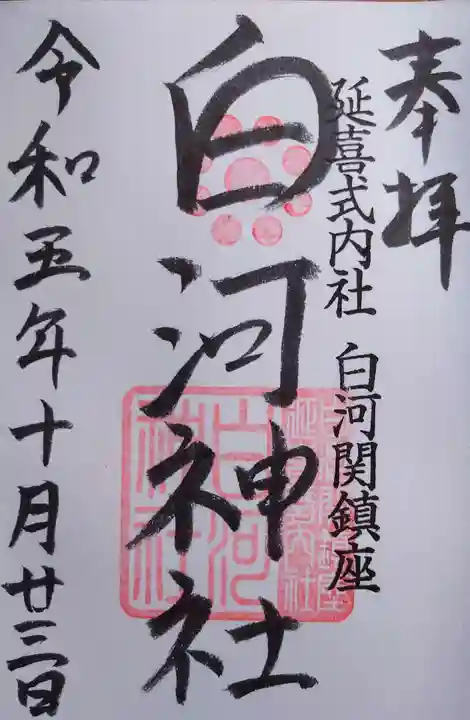 奉拝
延喜式内社 白河関鎮座
白河神社
令和五年十月廿三日